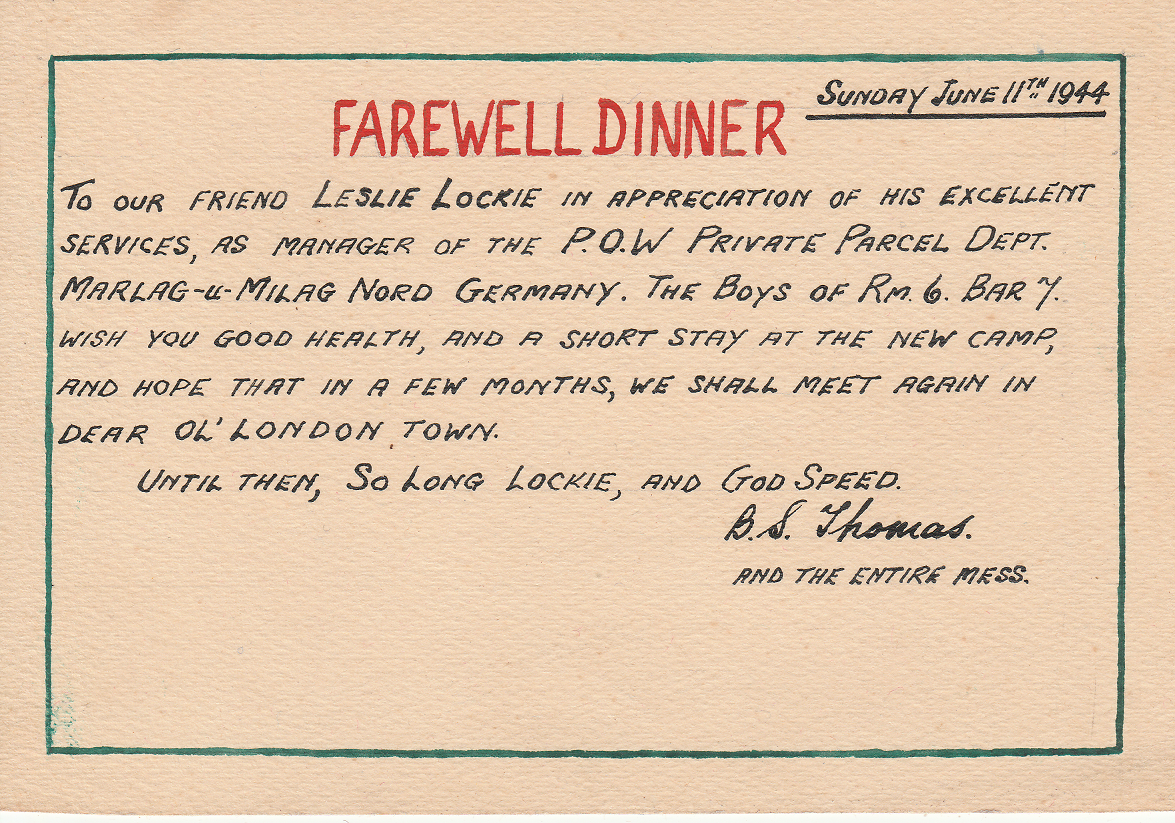 SUNDAY JUNE 11TH 1944
FAREWELL DINNER
TO OUR FRIEND LESLIE LOCKIE IN APPRECIATION OF HIS EXCELLENT
SERVICES, AS MANAGER OF THE P.O.W PRIVATE PARCEL DEPT.
MARLAG-u-MILAG NORD GERMANY. THE BOYS OF RM. 6. BAR 7.
WISH YOU GOOD HEALTH, AND A SHORT STAY AT THE NEW CAMP,
AND HOPE THAT IN A FEW MONTHS, WE SHALL MEET AGAIN IN
DEAR OL' LONDON TOWN.
UNTIL THEN, SO LONG LOCKIE, AND GOD SPEED.
B.S. Thomas.
AND THE ENTIRE MESS.